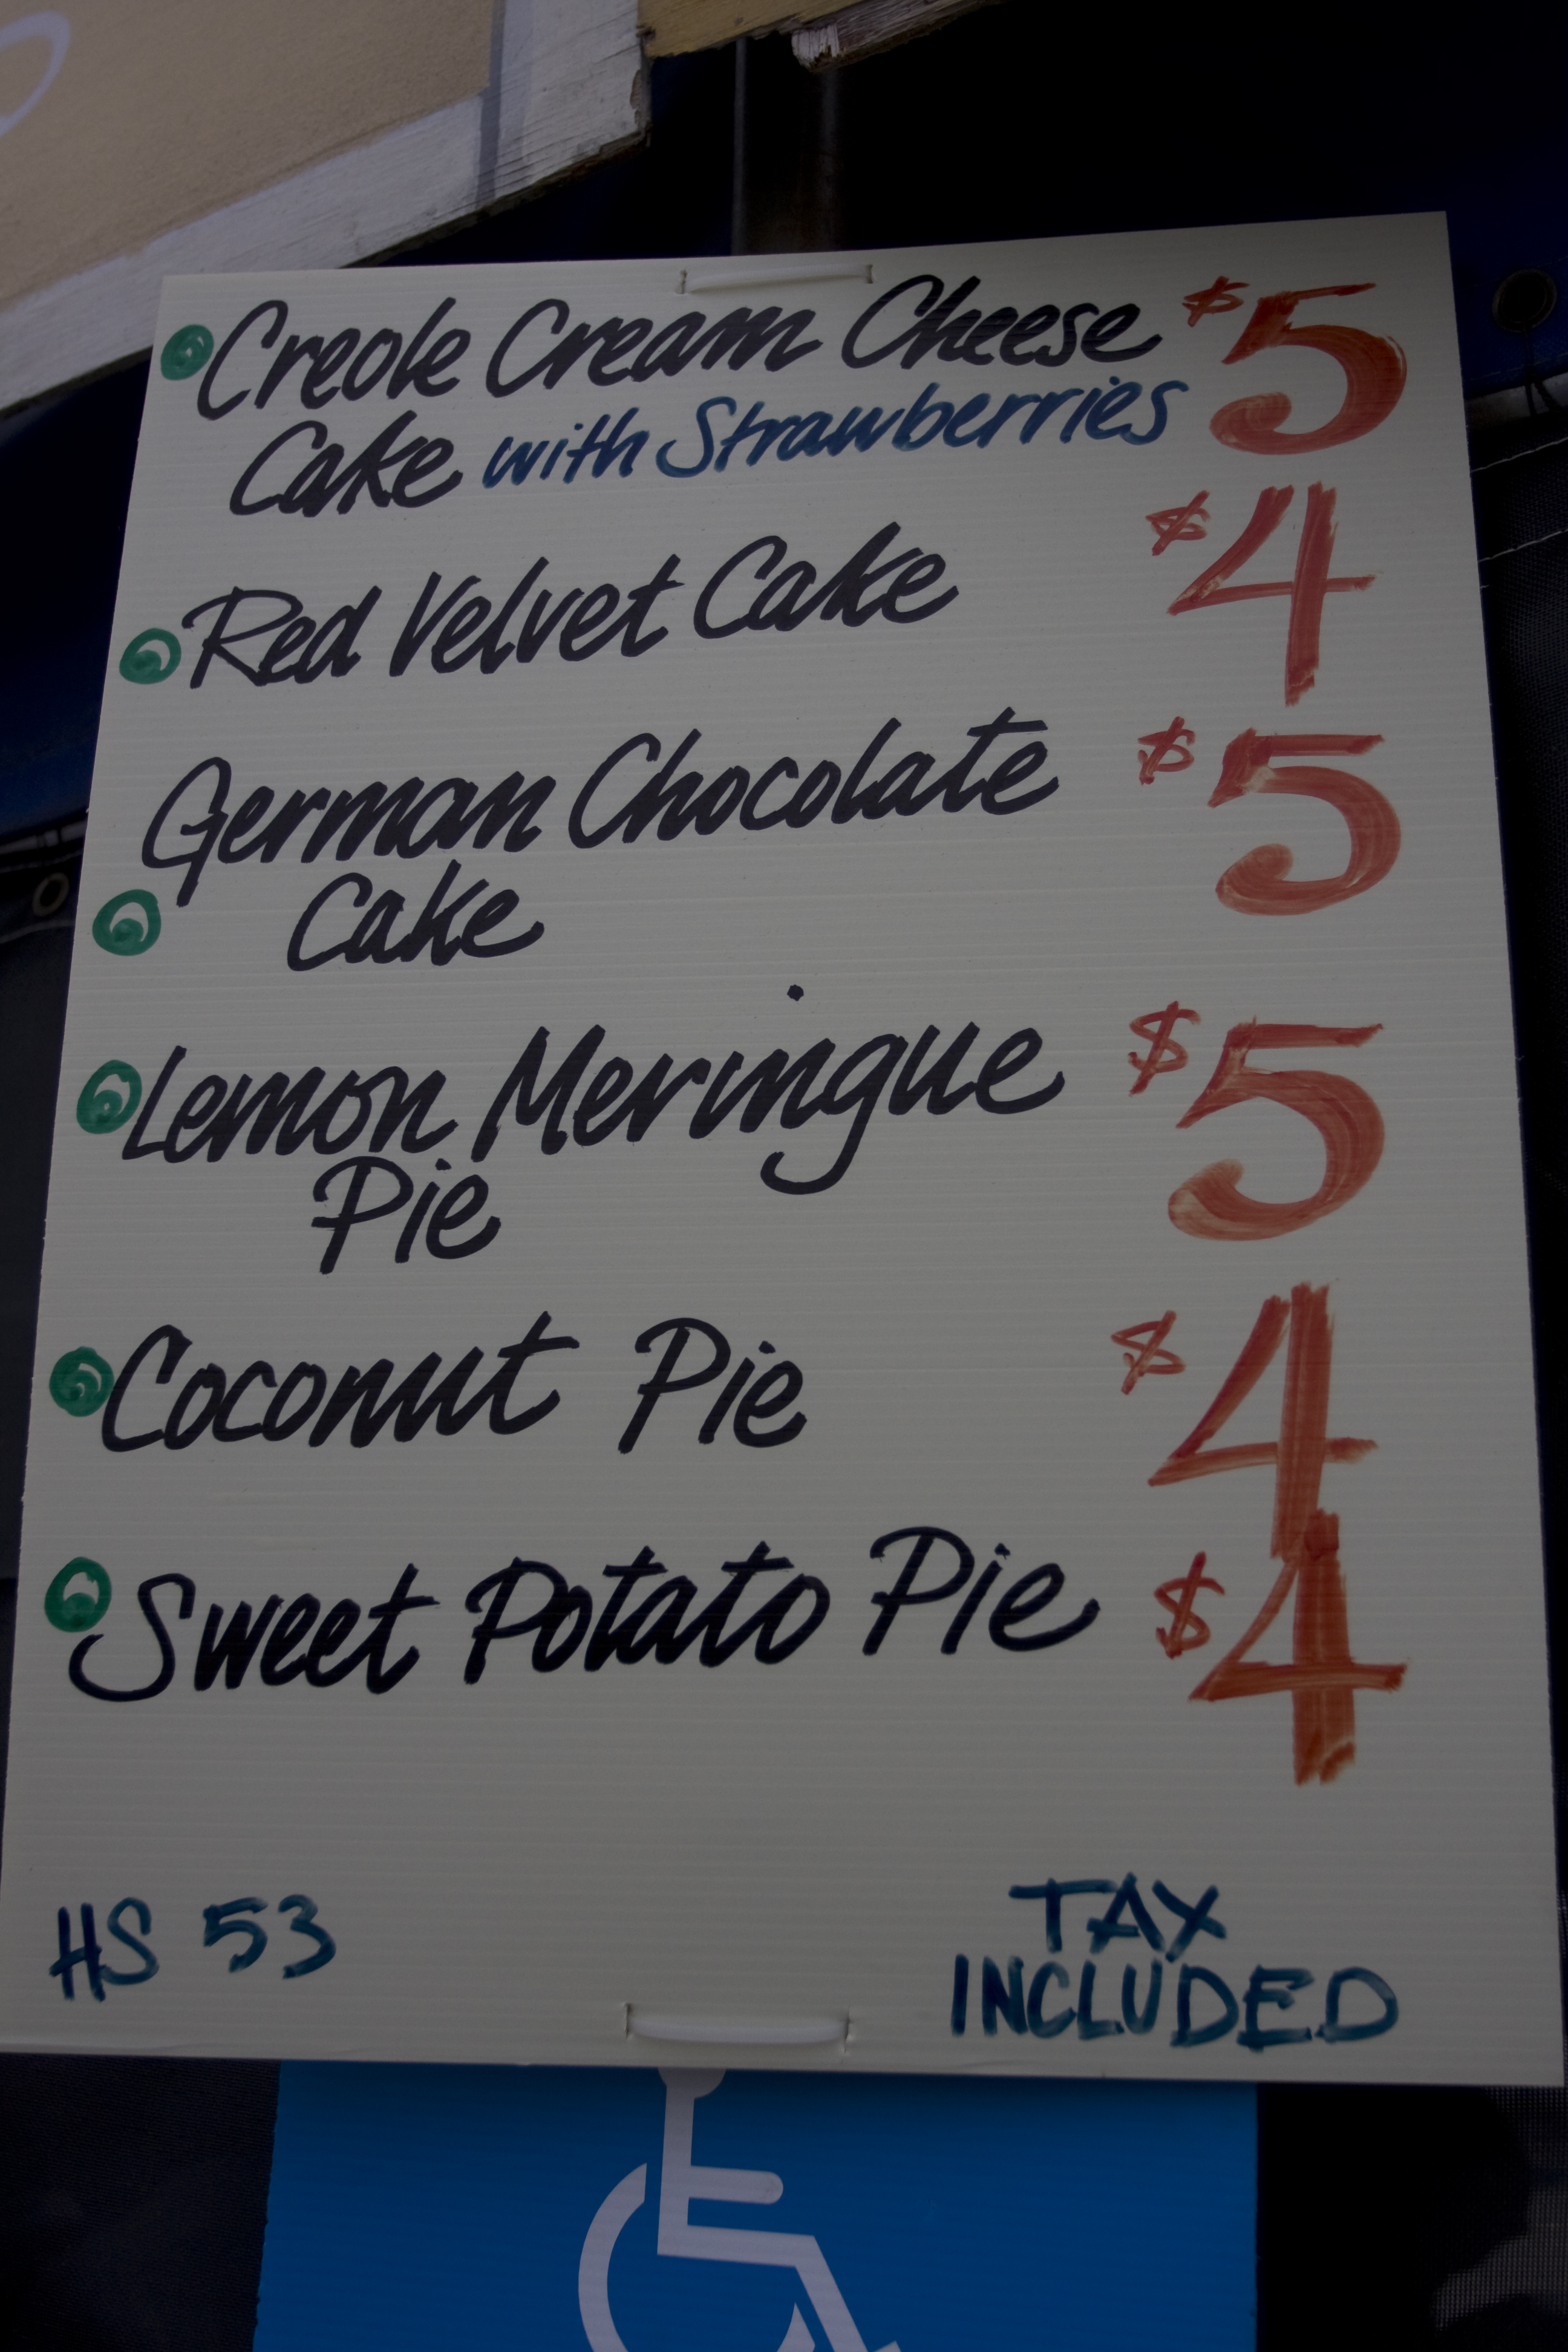 Creole Cream Cheese $5
Cake with Strawberries
Red Velvet Cake $4
German Chocolate $5
Cake
Lemon Meringue $5
Pie
Coconut Pie $4
Sweet Potato Pie $4
HS 53
TAX
INCLUDED